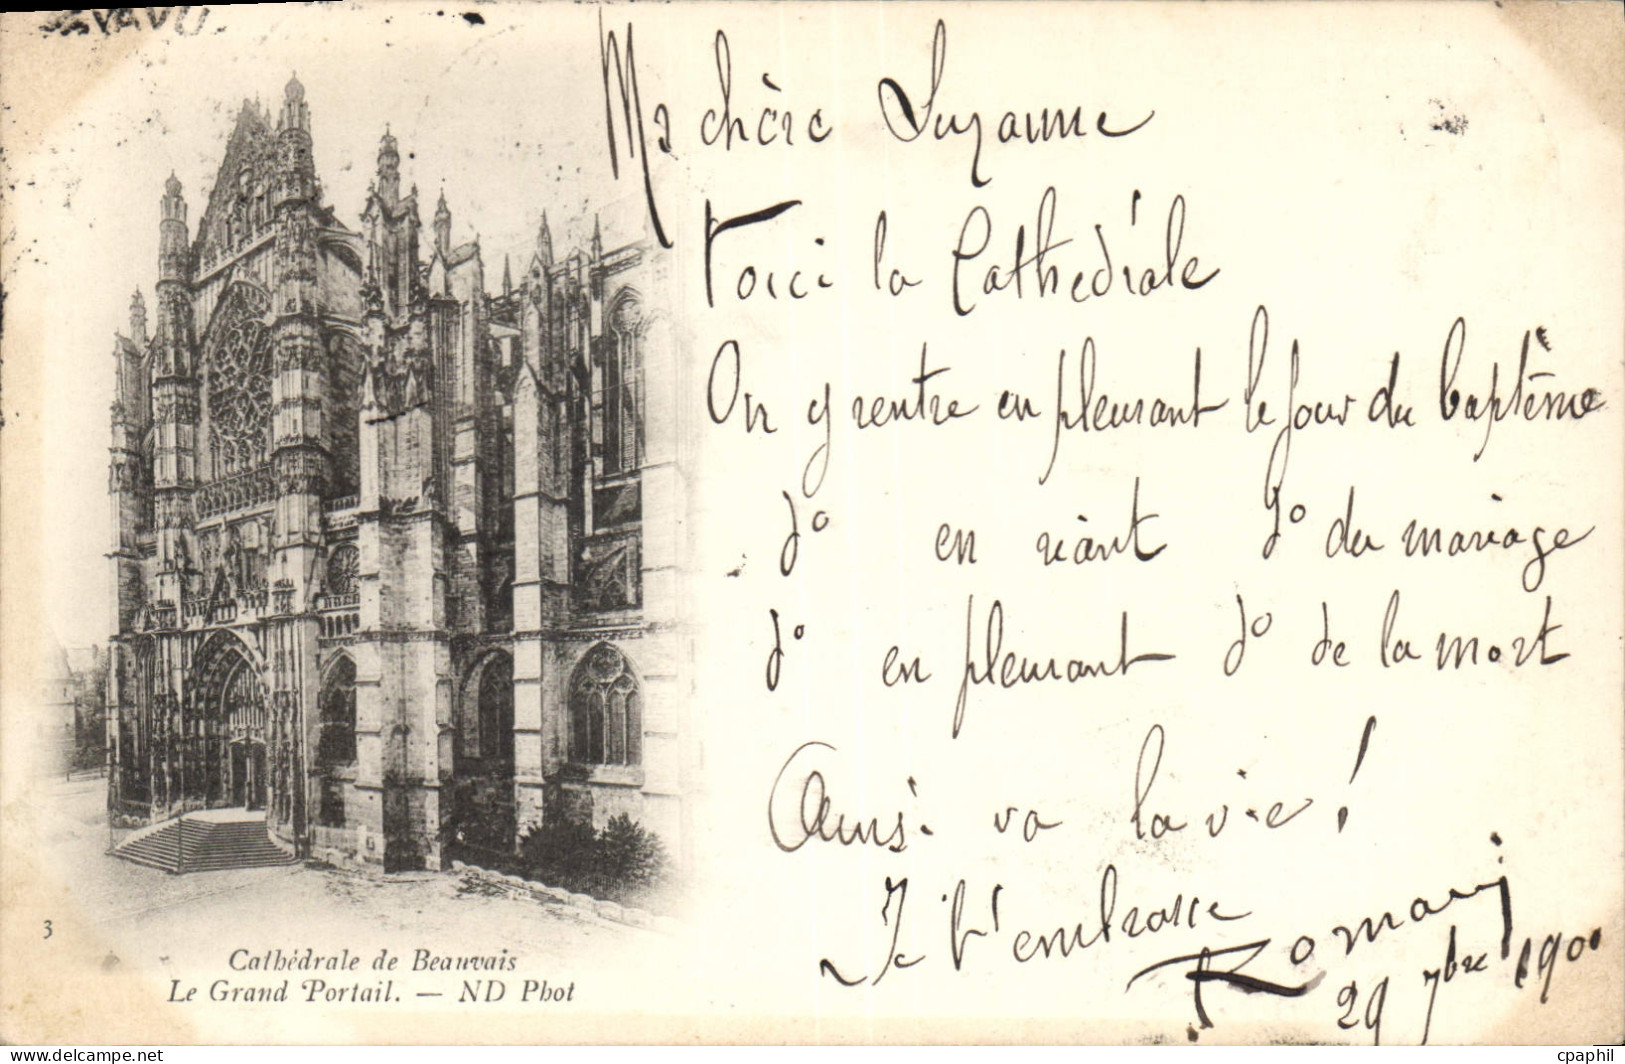 Ma chère Suzanne
Voici la Cathédrale
On y rentre en pleurant le jour du baptême
do en riant do du mariage
do en pleurant do de la mort
Ainsi va la vie !
Je t'embrasse
29 7bre 1900
3
Cathédrale de Beauvais
Le Grand Portail. — ND Phot
www.delcampe.net
cpaphil